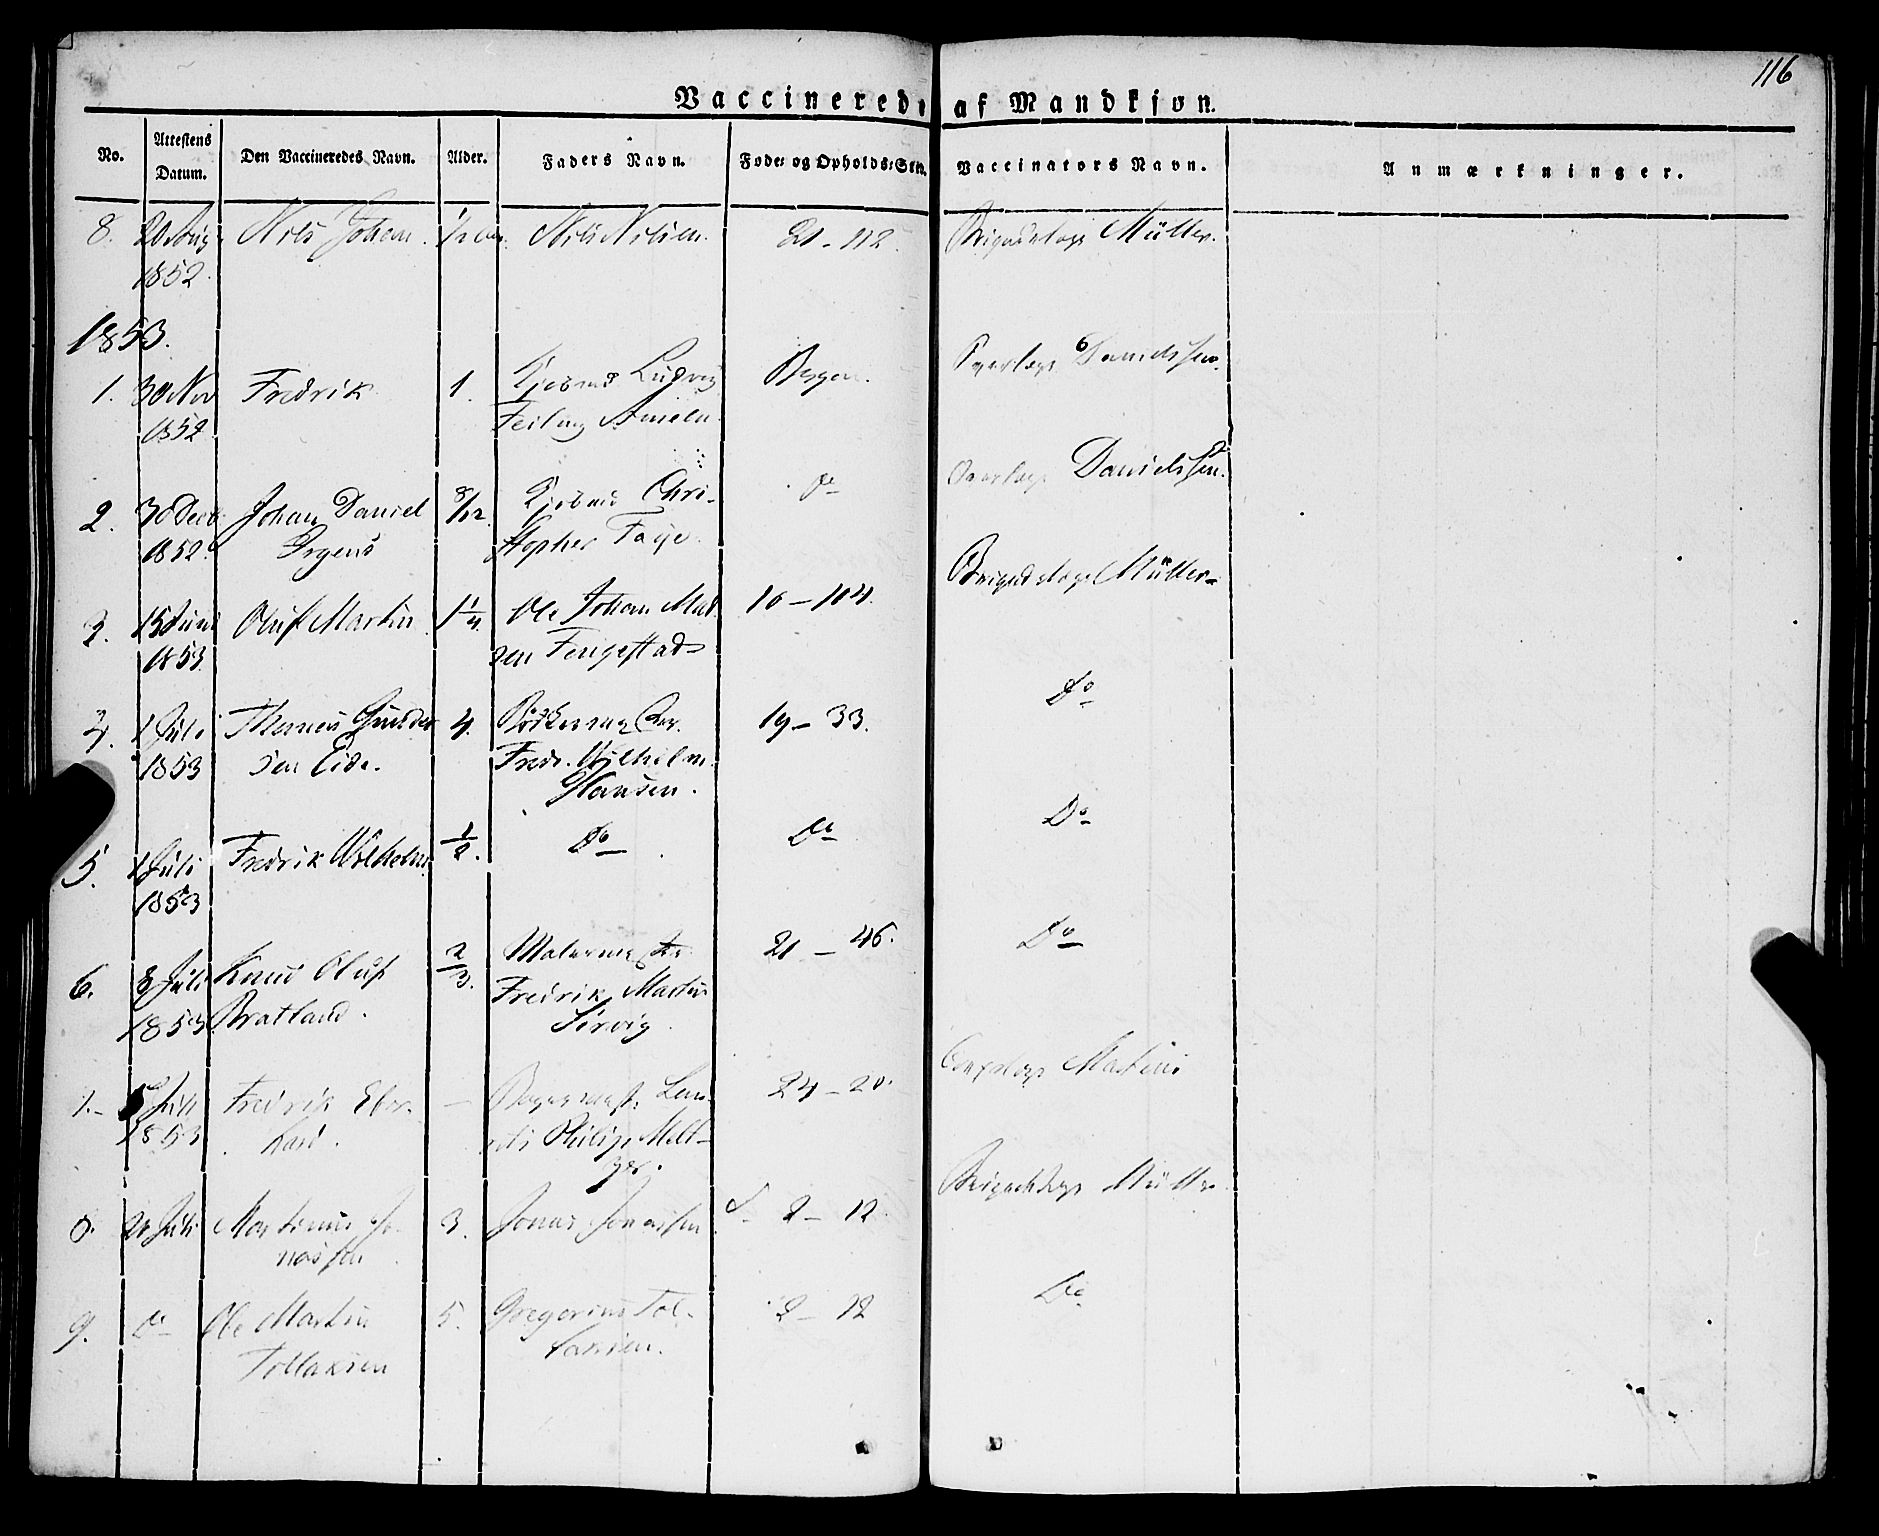 116
Vaccinerede af Mandkjøn.
No. Attestens Datum. Den Vaccineredes Navn. Alder. Faders Navn. Føde- og Opholds-Sted. Vaccinators Navn. Anmærkninger.
8. 20 Aug 1852 Nils Johan. 1/2 Nils Nilsen. 21-112 Brigadelæge Müller.
1853.
1. 30 Nov 1852 Fredrik 1. Kjøbmd Ludvig Bergen. Overlæge Danielssen.
2. 30 Decb 1852. Johan Daniel Irgens 8/12. Kjøbmd Christopher Faye. do Overlæge Danielssen.
3. 15 Juni 1853. Oluf Martin 1 1/4. Ole Johan Madsen 10-104. Brigadelæge Müller.
4. 1 Juli 1853 Thomas Gundersen Eide. 4. Fredr. Wilhelm Hansen. 19-33. Do
5. 1 Juli 1853 Fredrik Wilhelm 1/2. Do Do Do
6. 8 Juli 1853 Knud Oluf Bratland. 2/3. Malermester Fredrik Martin 21-46. Do
7.- Juli 1853 Fredrik Eberhard. - Philip Meltzer. 24-20. Corpslæge Martens
8. 21 Juli Martinus Jonassen 3. Jonas Jonassen 2-12. Brigadelæge Müller
9. do Ole Martin Tollaksen 5. Gregorius Tollaksen. 2-12 Do